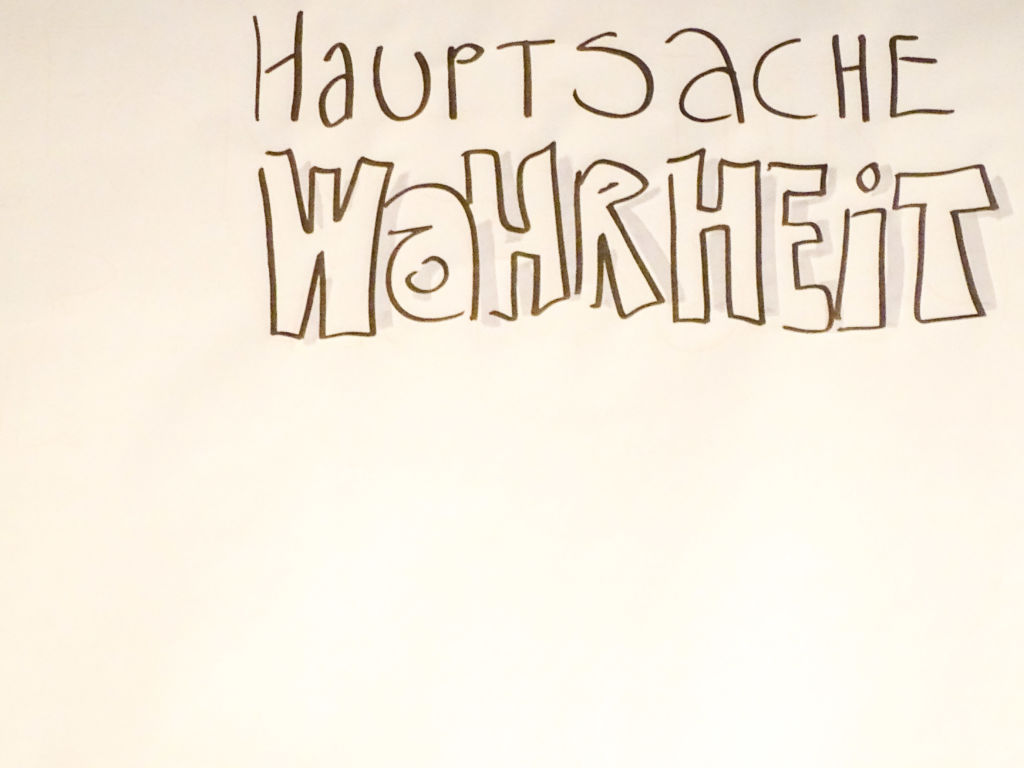 HaUPTSaCHE
WaHRHEiT